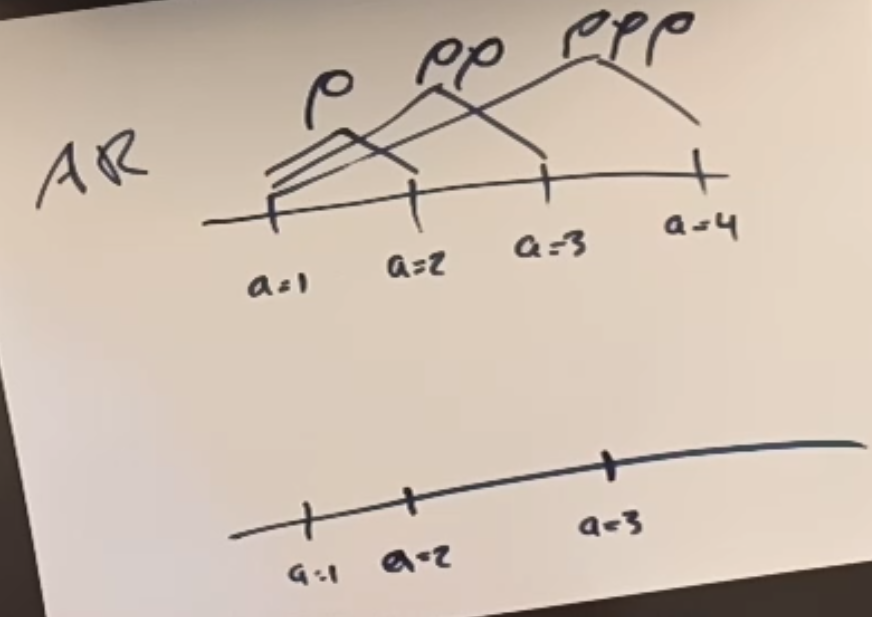 ρ ρρ ρρρ
AR
a=1 a=2 a=3 a=4
a=1 a=2 a=3